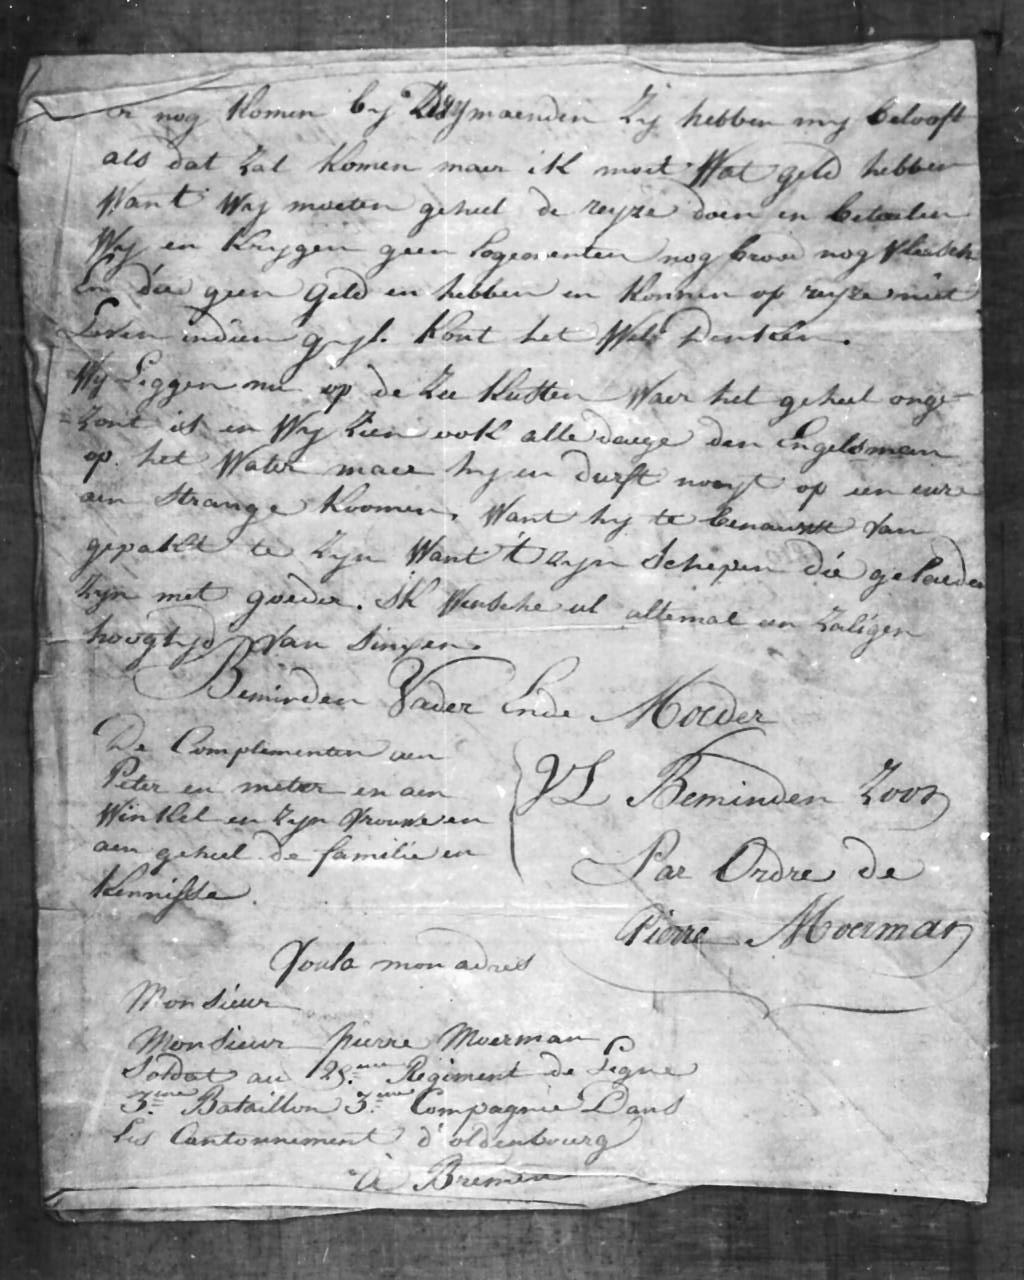 or nog komen by dry maenden Zy hebben my belooft
als dat Zal komen maer ik moet Wat geld hebben
Want Wy moeten geheel de reyze doen en betaelen
Wy en krygen geen logementen nog broor nog vleesch
En die geen geld en hebben en konnen op reyze niet
Leven indien gyl. kont het Wel Denken.
Wy Liggen nu op de Zee kusten Waer het geheel onge=
=Zont is en Wy Zien ook alle daege den Engelsman
op het Water maer hy en durft noeyt op een eure
aen strange koomen, Want hy te benauwt van
gepakt te Zyn Want 't zyn Schepen die gelaeden
Zyn met goeder. Ik Wensche ul altemal een Zaligen
hoogtyd van sinxen.
Beminden Vader Ende Moeder
De Complementen aen
Peter en meter en aen
Winkel en Zyn Vrouwe en
aen geheel de familie en
kennisse.
VL Beminden Zoon
Par Ordre de
Pierre Moerman
Voula mon adres
Monsieur
Monsieur pierre Moerman
Soldat au 25.me Régiment de Ligne
3.me Bataillon 3.me Compagnie Dans
Les Cantonnement d'oldenbourg
à Bremen